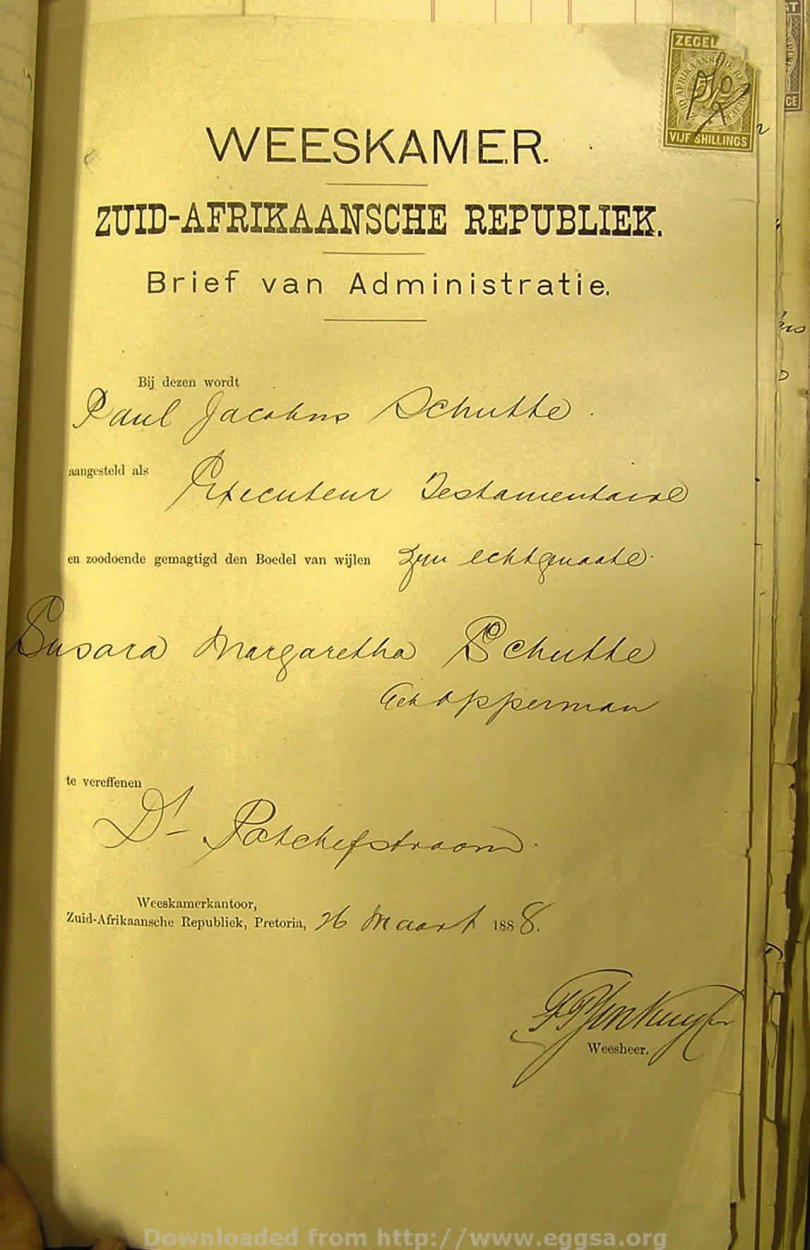 ZEGEL
VIJF SHILLINGS
WEESKAMER.
ZUID-AFRIKAANSCHE REPUBLIEK.
Brief van Administratie.
Bij dezen wordt
Paul Jacobus Schutte.
aangesteld als Executeur Testamentair
en zoodoende gemagtigd den Boedel van wijlen zyn echtgenoote
Susara Margaretha Schutte
geb Opperman
te vereffenen
Dt Potchefstroom.
Weeskamerkantoor,
Zuid-Afrikaansche Republiek, Pretoria, 26 Maart 1888.
Weesheer.
Downloaded from http://www.eggsa.org